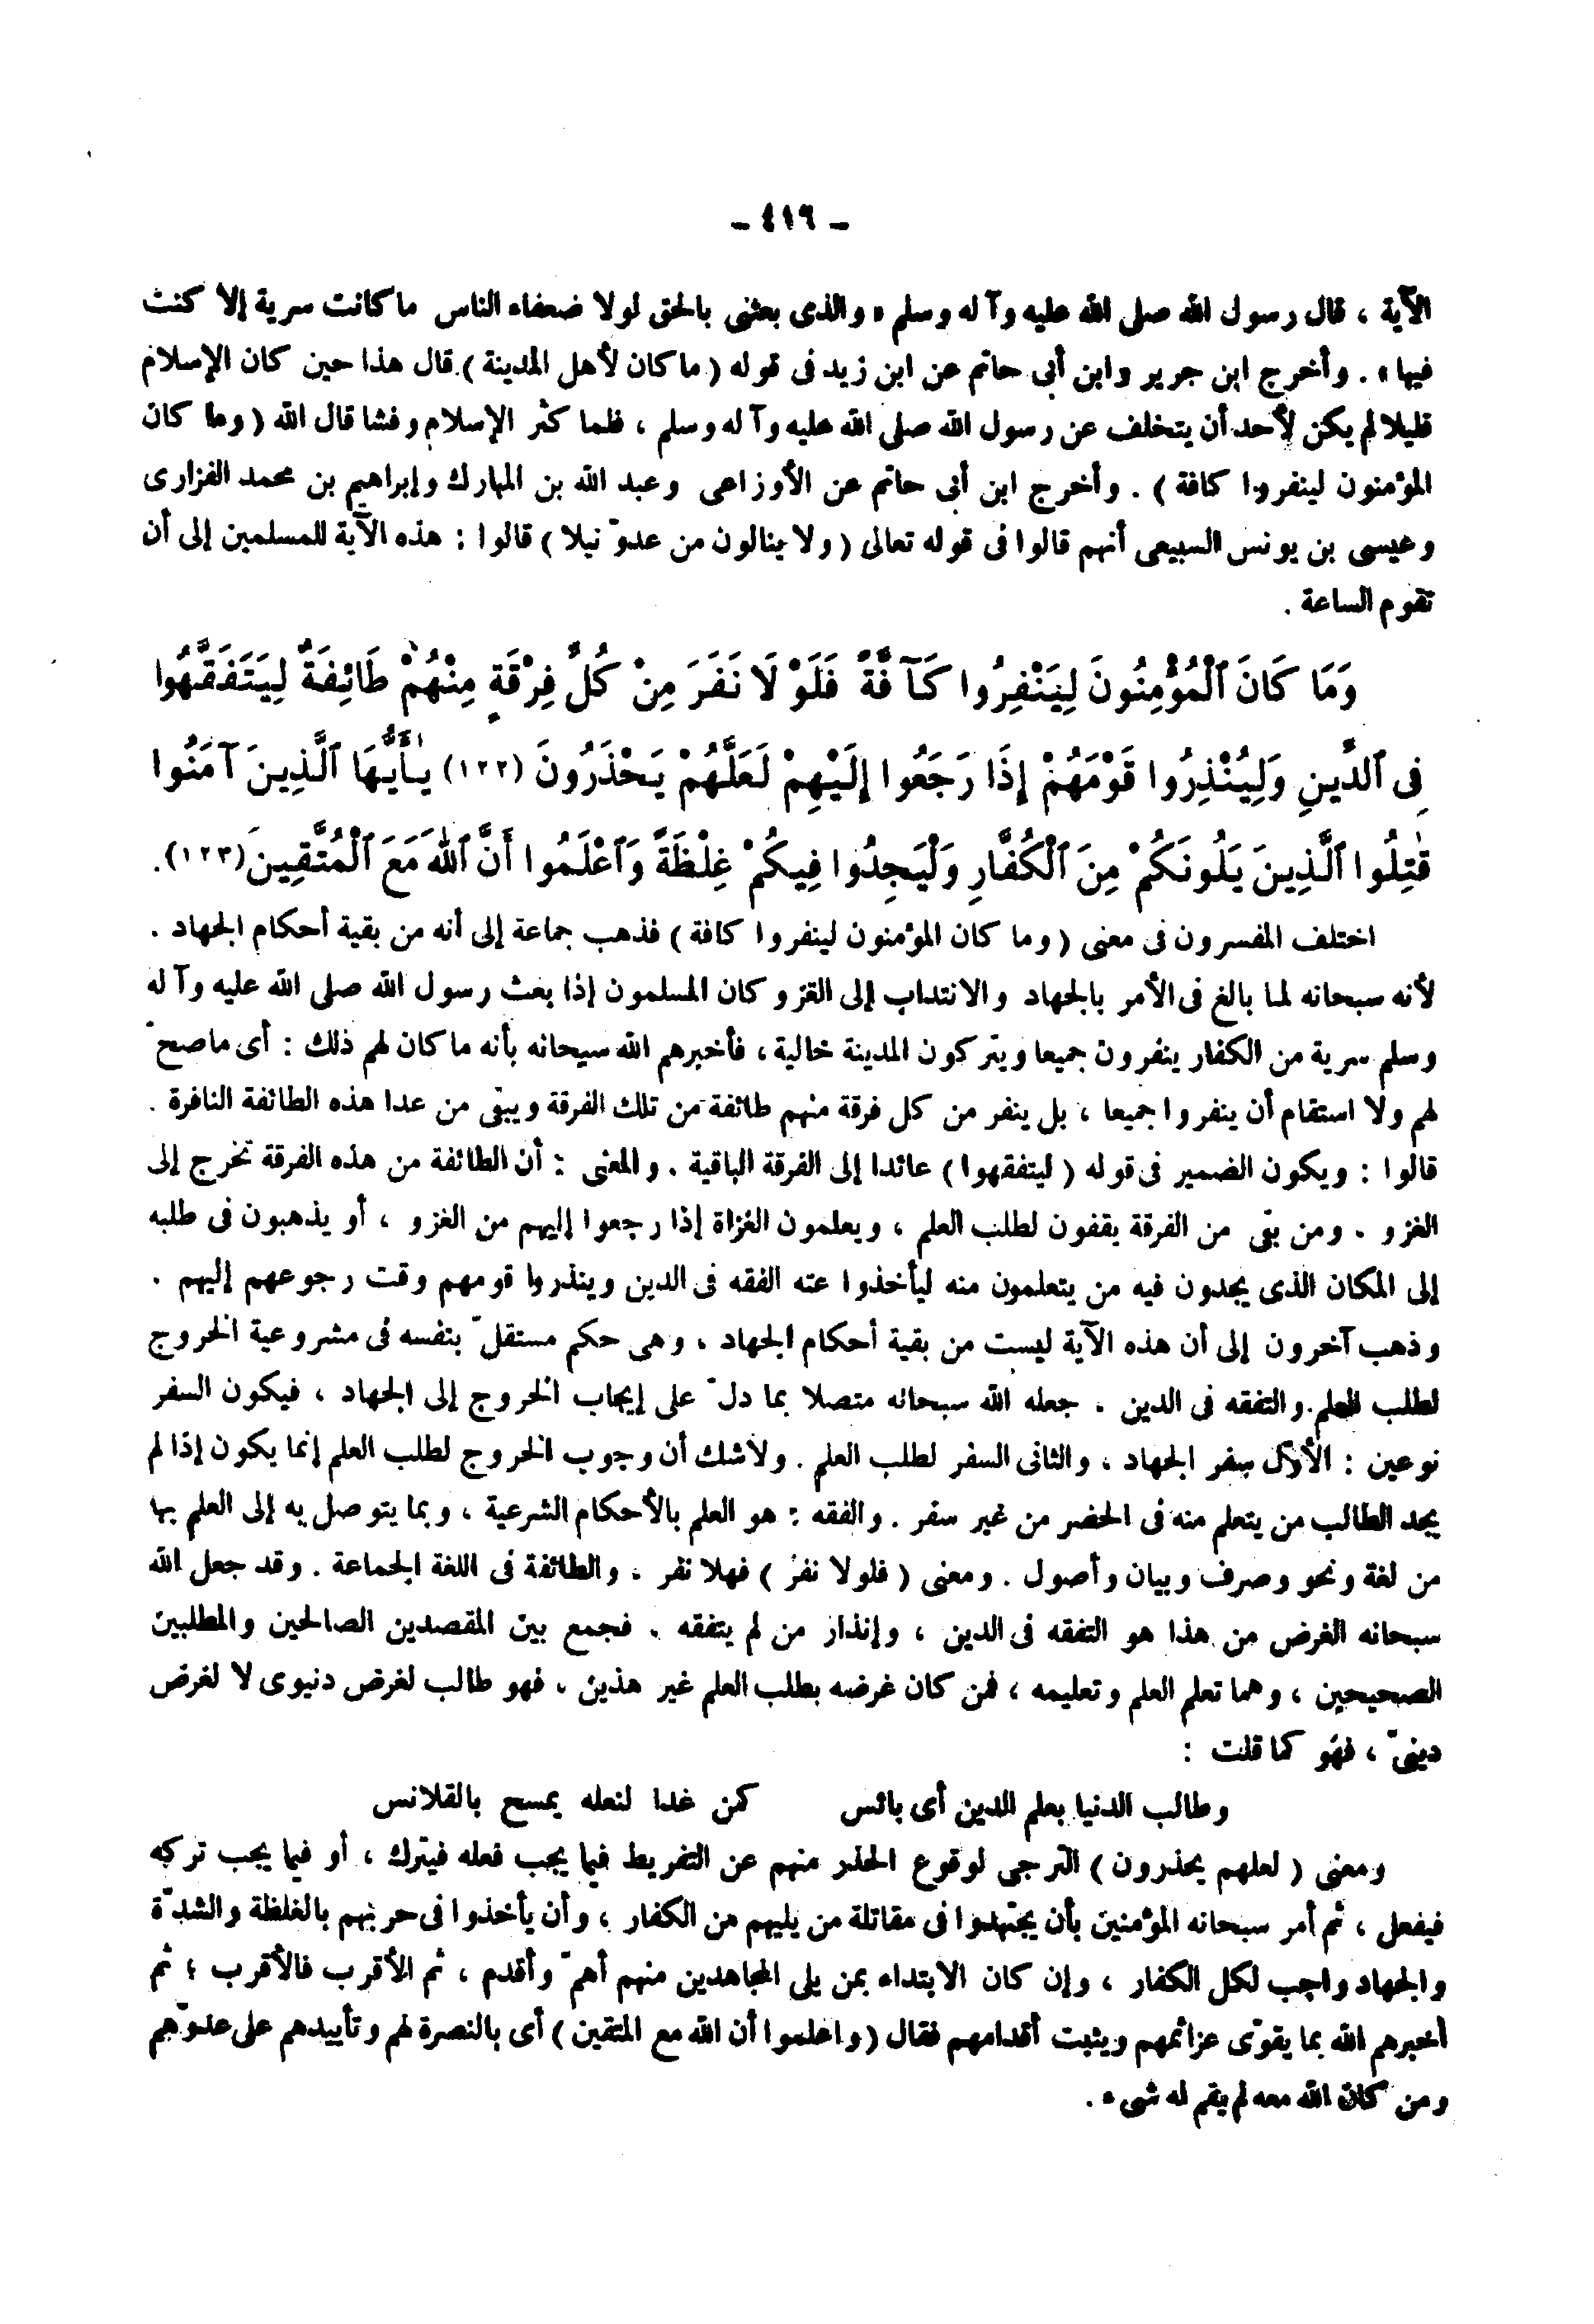 - ٤١٦ -
الآية ، قال رسول الله صلى الله عليه وآله وسلم « والذى بعثنى بالحق لولا ضعفاء الناس ما كانت سرية إلا كنت
فيها » . وأخرج ابن جرير وابن أبى حاتم عن ابن زيد فى قوله ( ما كان لأهل المدينة ) قال هذا حين كان الإسلام
قليلا لم يكن لأحد أن يتخلف عن رسول الله صلى الله عليه وآله وسلم ، فلما كثر الإسلام وفشا قال الله ( وما كان
المؤمنون لينفروا كافة ) . وأخرج ابن أبى حاتم عن الأوزاعى وعبد الله بن المبارك وإبراهيم بن محمد الفزارى
وعيسى بن يونس السبيعى أنهم قالوا فى قوله تعالى ( ولا ينالون من عدوّ نيلا ) قالوا : هذه الآية للمسلمين إلى أن
تقوم الساعة .
وَمَا كَانَ ٱلْمُؤْمِنُونَ لِيَنْفِرُوا كَآفَّةً فَلَوْ لَا نَفَرَ مِنْ كُلِّ فِرْقَةٍ مِنْهُمْ طَائِفَةٌ لِيَتَفَقَّهُوا
فِى ٱلدِّينِ وَلِيُنْذِرُوا قَوْمَهُمْ إِذَا رَجَعُوا إِلَيْهِمْ لَعَلَّهُمْ يَحْذَرُونَ (١٢٢) يَٰأَيُّهَا ٱلَّذِينَ آمَنُوا
قَٰتِلُوا ٱلَّذِينَ يَلُونَكُمْ مِنَ ٱلْكُفَّارِ وَلْيَجِدُوا فِيكُمْ غِلْظَةً وَٱعْلَمُوا أَنَّ ٱللَّهَ مَعَ ٱلْمُتَّقِينَ (١٢٣).
اختلف المفسرون فى معنى ( وما كان المؤمنون لينفروا كافة ) فذهب جماعة إلى أنه من بقية أحكام الجهاد .
لأنه سبحانه لما بالغ فى الأمر بالجهاد والانتداب إلى الغزو كان المسلمون إذا بعث رسول الله صلى الله عليه وآله
وسلم سرية من الكفار ينفرون جميعا ويتركون المدينة خالية ، فأخبرهم الله سبحانه بأنه ما كان لهم ذلك : أى ما صحّ
لهم ولا استقام أن ينفروا جميعا ، بل ينفر من كل فرقة منهم طائفة من تلك الفرقة ويبقى من عدا هذه الطائفة النافرة .
قالوا : ويكون الضمير فى قوله ( ليتفقهوا ) عائدا إلى الفرقة الباقية . والمعنى : أن الطائفة من هذه الفرقة تخرج إلى
الغزو . ومن بقى من الفرقة يقفون لطلب العلم ، ويعلمون الغزاة إذا رجعوا إليهم من الغزو ، أو يذهبون فى طلبه
إلى المكان الذى يجدون فيه من يتعلمون منه ليأخذوا عنه الفقه فى الدين وينذروا قومهم وقت رجوعهم إليهم .
وذهب آخرون إلى أن هذه الآية ليست من بقية أحكام الجهاد ، وهى حكم مستقلّ بنفسه فى مشروعية الخروج
لطلب العلم والتفقه فى الدين . جعله الله سبحانه متصلا بما دلّ على إيجاب الخروج إلى الجهاد ، فيكون السفر
نوعين : الأوّل سفر الجهاد ، والثانى السفر لطلب العلم . ولا شك أن وجوب الخروج لطلب العلم إنما يكون إذا لم
يجد الطالب من يتعلم منه فى الحضر من غير سفر . والفقه : هو العلم بالأحكام الشرعية ، وبما يتوصل به إلى العلم بها
من لغة ونحو وصرف وبيان وأصول . ومعنى ( فلولا نفر ) فهلا نفر ، والطائفة فى اللغة الجماعة . وقد جعل الله
سبحانه الغرض من هذا هو التفقه فى الدين ، وإنذار من لم يتفقه . فجمع بين المقصدين الصالحين والمطلبين
الصحيحين ، وهما تعلم العلم وتعليمه ، فمن كان غرضه بطلب العلم غير هذين ، فهو طالب لغرض دنيوى لا لغرض
دينىّ ، فهو كما قلت :
وطالب الدنيا بعلم الدين أى بائس كمن غدا لنعله يمسح بالقلانس
ومعنى ( لعلهم يحذرون ) الترجى لوقوع الحذر منهم عن التفريط فيما يجب فعله فيترك ، أو فيما يجب تركه
فيفعل ، ثم أمر سبحانه المؤمنين بأن يجتهدوا فى مقاتلة من يليهم من الكفار ، وأن يأخذوا فى حربهم بالغلظة والشدّة
والجهاد واجب لكل الكفار ، وإن كان الابتداء بمن يلى المجاهدين منهم أهمّ وأقدم ، ثم الأقرب فالأقرب ؛ ثم
أخبرهم الله بما يقوّى عزائمهم ويثبت أقدامهم فقال ( واعلموا أن الله مع المتقين ) أى بالنصرة لهم وتأييدهم على عدوّهم
ومن كان الله معه لم يقم له شىء .